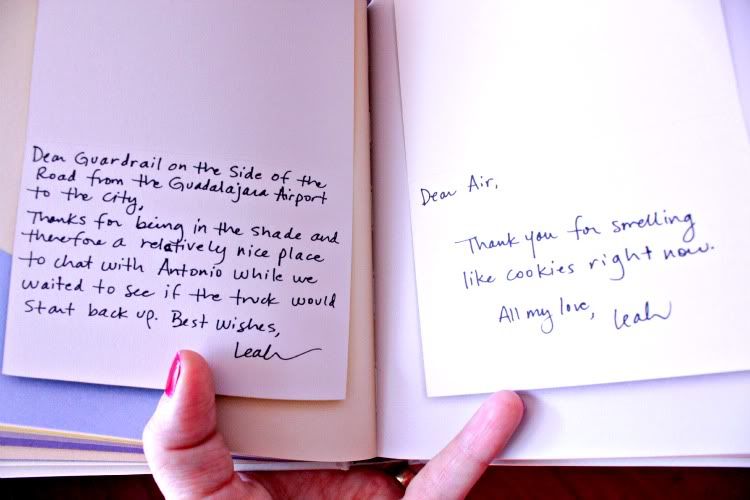 Dear Guardrail on the Side of the
Road from the Guadalajara Airport
to the City,
Thanks for being in the shade and
therefore a relatively nice place
to chat with Antonio while we
waited to see if the truck would
start back up. Best Wishes,
Leah
Dear Air,
Thank you for smelling
like cookies right now.
All my love, Leah